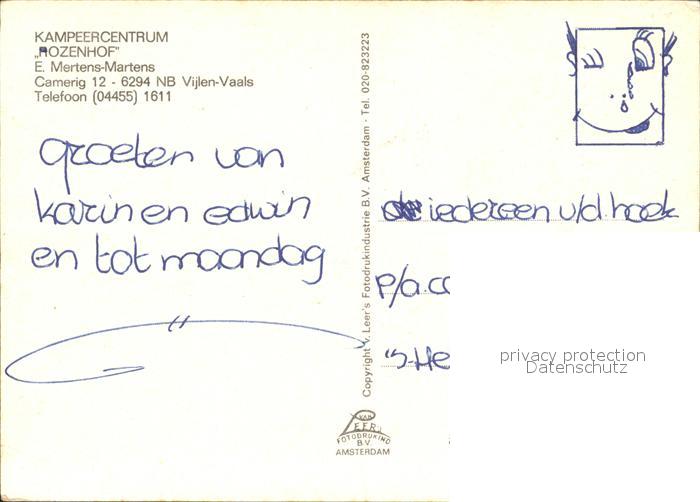 KAMPEERCENTRUM
„ROZENHOF"
E. Mertens-Martens
Camerig 12 - 6294 NB Vijlen-Vaals
Telefoon (04455) 1611
groeten van
karin en edwin
en tot maandag
Copyright v. Leer's Fotodrukindustrie B.V. Amsterdam - Tel. 020-823223
VAN
LEER'S
FOTODRUKIND
B.V.
AMSTERDAM
iedereen v/d hoek
p/a co
's-He
privacy protection
Datenschutz